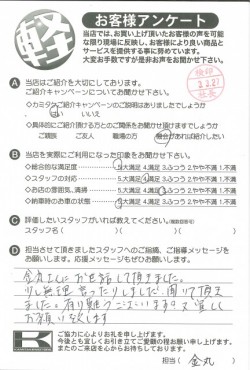 軽
お客様アンケート
当店では、お買い上げ頂いたお客様の声を可能
な限り現場に反映し、お客様により良い商品と
サービスを提供する事に努めています。
大変お手数ですが是非お声をお聞かせ下さい。
A 当店はご紹介を大切にしております。
ご紹介キャンペーンについてお聞かせ下さい。
はい いいえ
ご親族 ご友人 職場の方 機会があれば紹介したい
B 当店を実際にご利用になった印象をお聞かせ下さい。
・総合的な満足度 5.大満足 4.満足 3.ふつう 2.やや不満 1.不満
・スタッフの対応 5.大満足 4.満足 3.ふつう 2.やや不満 1.不満
・お店の雰囲気、清掃 5.大満足 4.満足 3.ふつう 2.やや不満 1.不満
・納車時のお車の状態 5.大満足 4.満足 3.ふつう 2.やや不満 1.不満
C 評価したいスタッフがいれば教えてください。(複数回答可)
スタッフ名( )( )( )
D 担当させて頂きましたスタッフへのご指摘、ご指導メッセージを
お願いします。応援メッセージもぜひお願いします。
金丸さんにお世話して頂きました。
少し無理言ったりしましたし聞いて頂き
ました。有り難うございます。又宜しく
お願い致します
ご協力に心よりお礼を申し上げます。
今後とも宜しくお引き立てご愛顧の程お願い申し上げます。
またのご来店を心からお待ちしております。
担当( 金丸 )